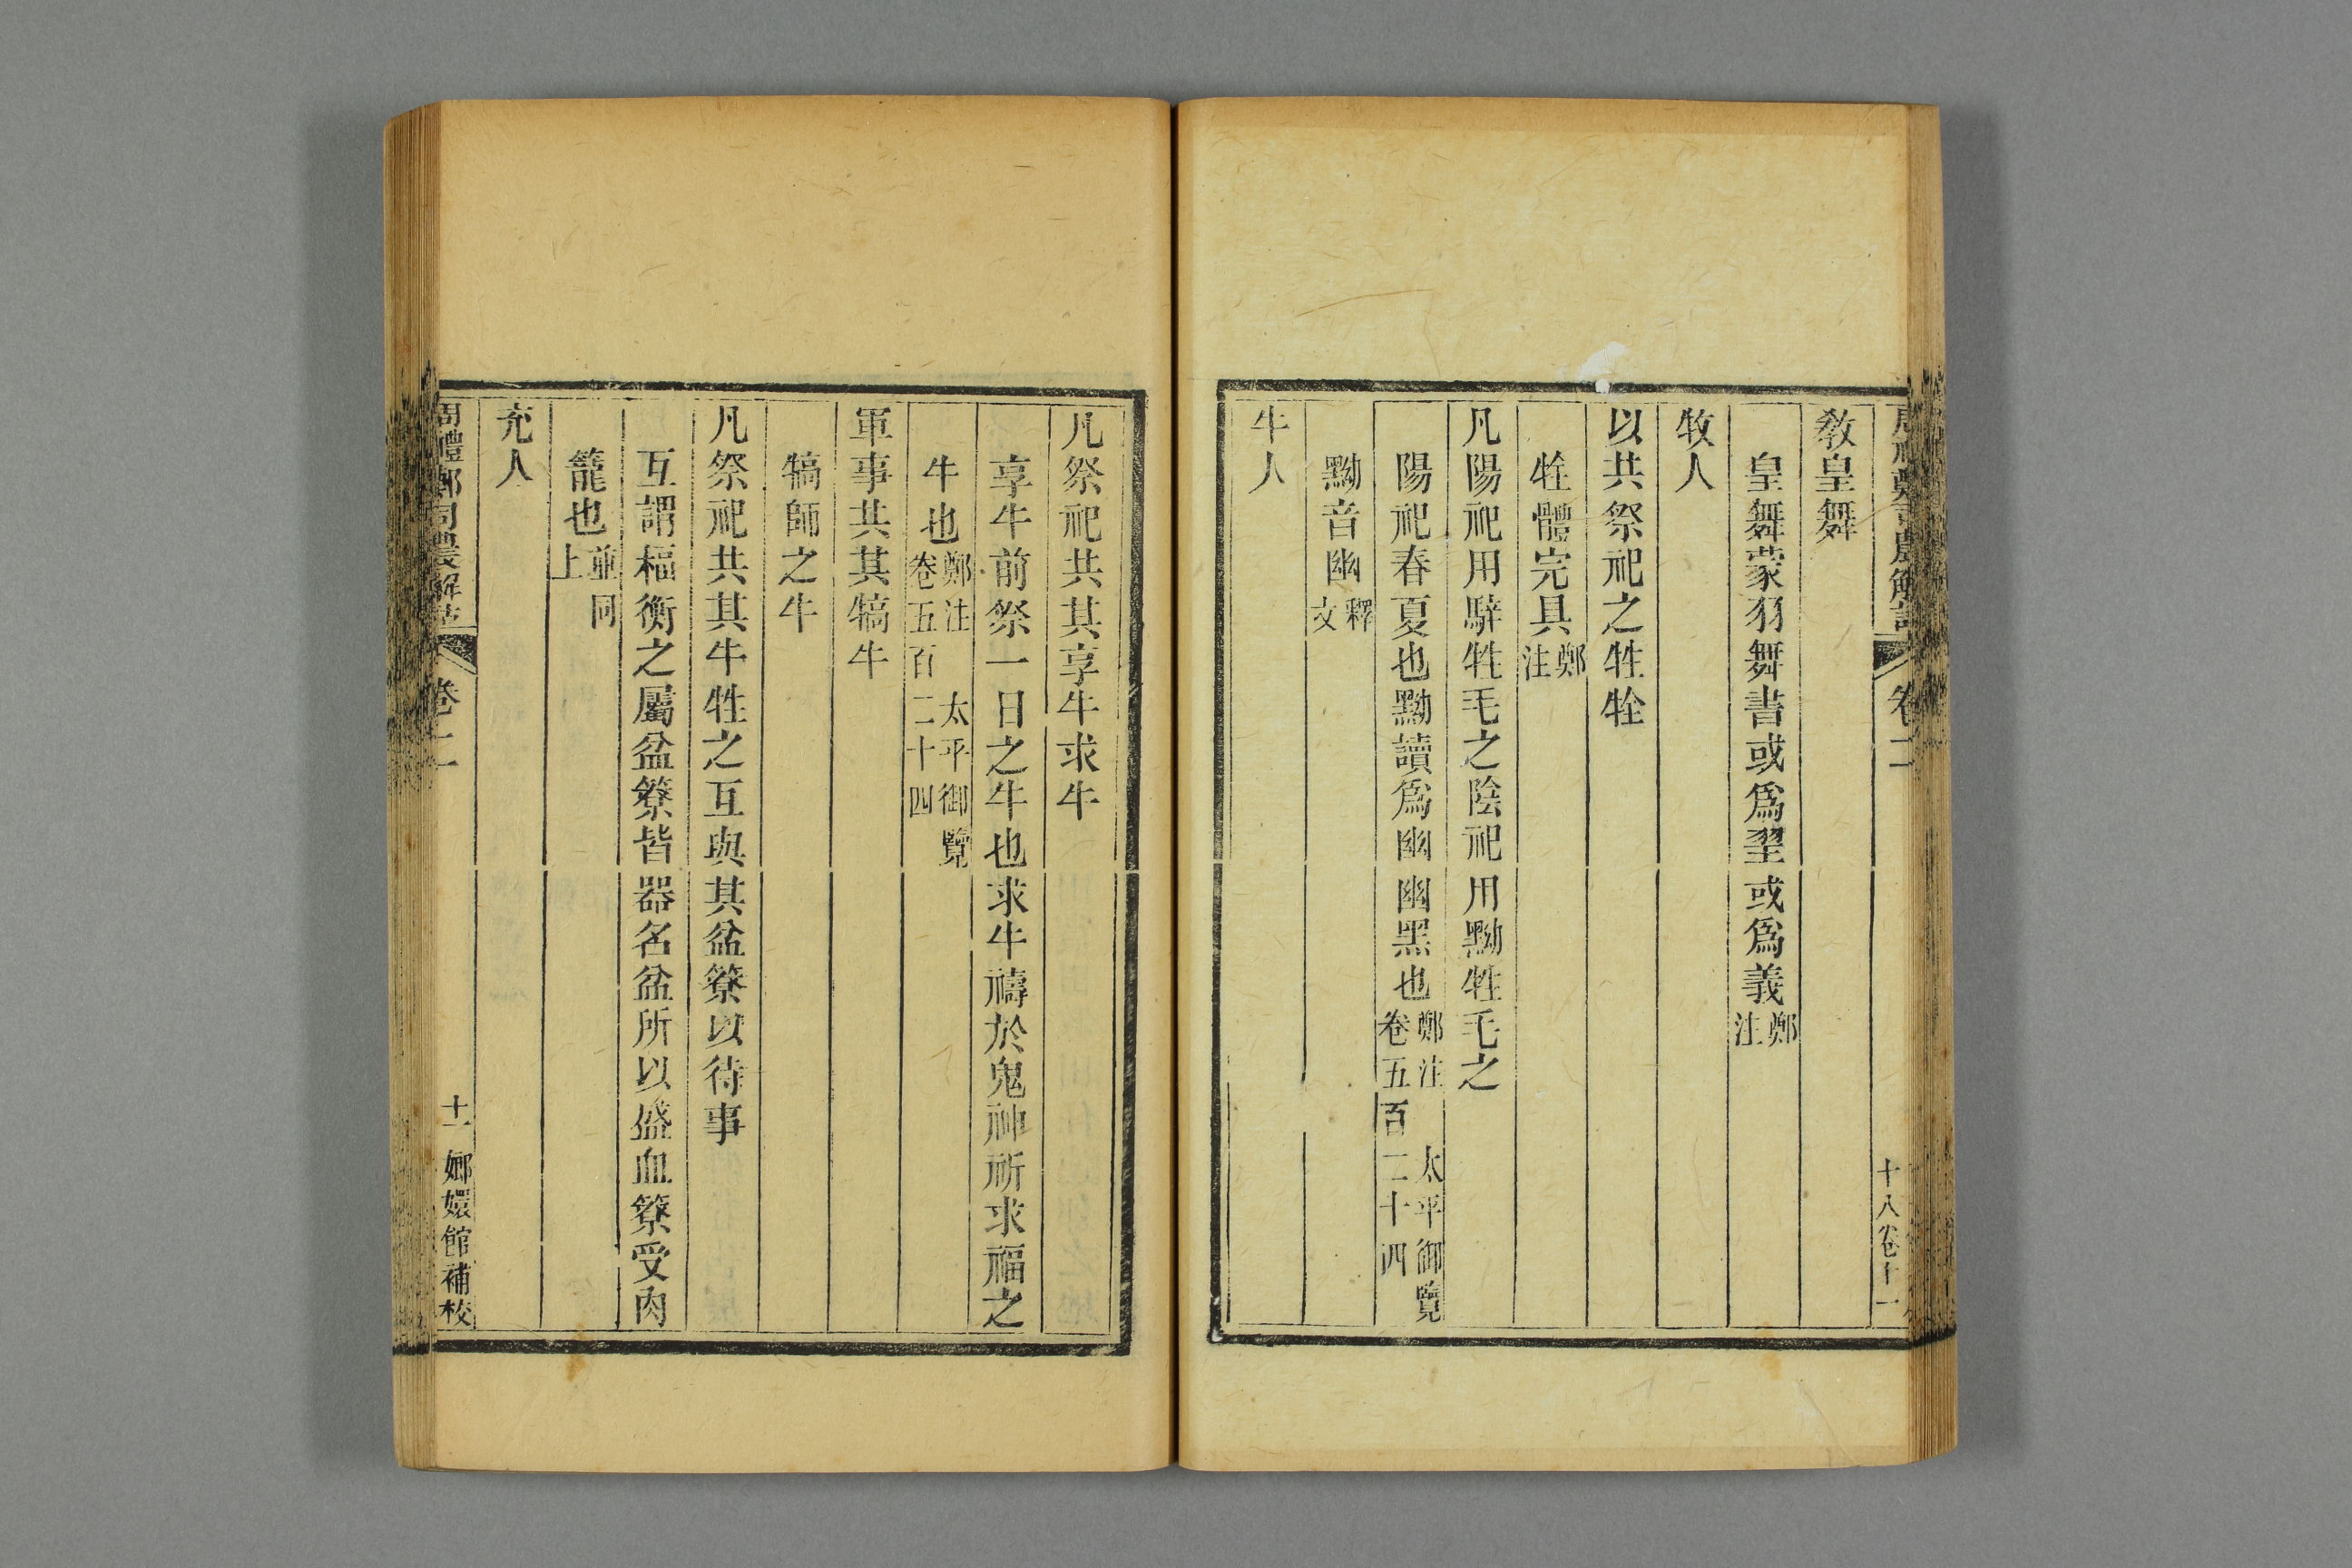 周禮鄭司農解詁
卷二
十八卷十一
敎皇舞
皇舞蒙羽舞書或爲翌或爲義鄭注
牧人
以共祭祀之牲牷
牷體完具鄭注
凡陽祀用騂牲毛之陰祀用黝牲毛之
陽祀春夏也黝讀爲幽幽黑也鄭注 太平御覽卷五百二十四
黝音幽釋文
牛人
凡祭祀共其享牛求牛
享牛前祭一日之牛也求牛禱於鬼神祈求福之
牛也鄭注 太平御覽卷五百二十四
軍事共其犒牛
犒師之牛
凡祭祀共其牛牲之互與其盆簝以待事
互謂楅衡之屬盆簝皆器名盆所以盛血簝受肉
籠也並同上
充人
周禮鄭司農解詁
卷二
十一
嫏嬛館補校